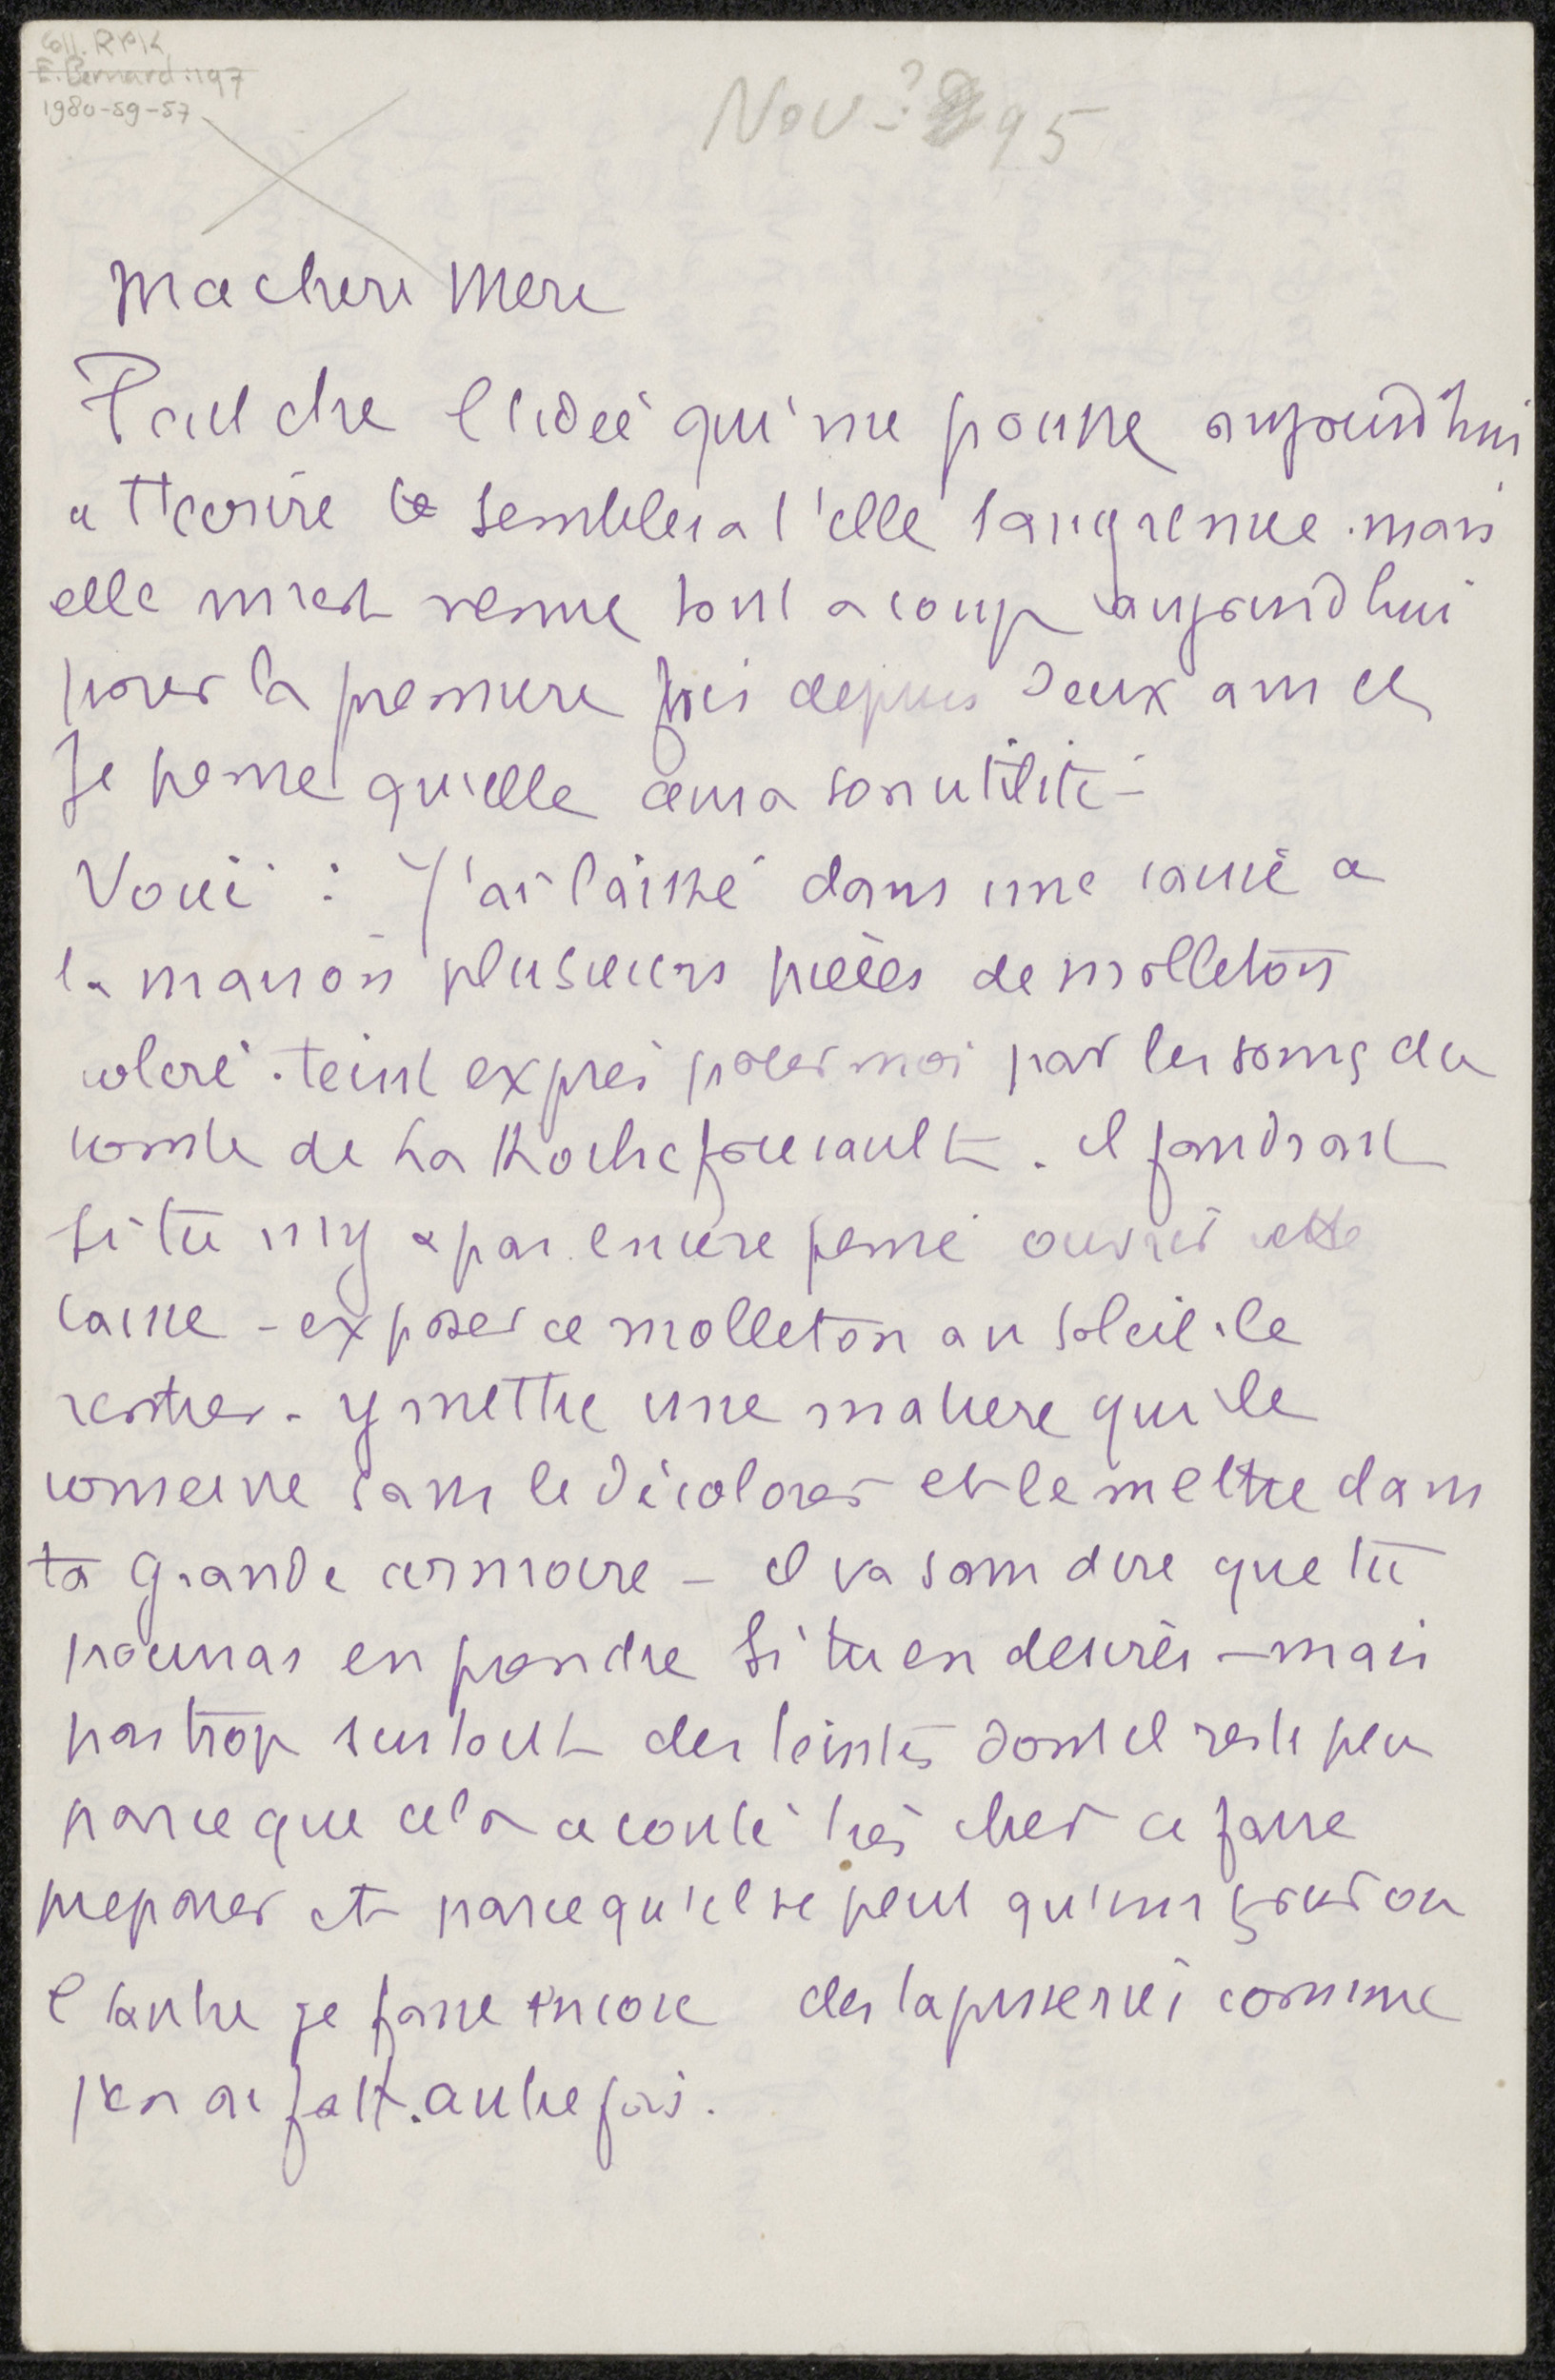 Coll. RPK
E. Bernard: 197
1980-59-57
Nov - ? 95
Ma chere Mere
Peut etre l'idée qui me pousse aujourd'hui
a t'ecrire te semblera t'elle saugrenue. mais
elle m'est venue tout a coup aujourd'hui
pour la premiere fois depuis deux ans et
Je pense qu'elle aura son utilité -
Voici : J'ai laissé dans une caisse a
la maison plusieurs pièces de molleton
coloré. teint exprès pour moi par les soins du
comte de La Rochefoucault. il faudrait
si tu n'y a pas encore pensé ouvrir cette
caisse - exposer ce molleton au soleil. le
rentrer. y mettre une matiere qui le
conserve sans le décolorer et le mettre dans
ta grande armoire - il va sans dire que tu
pourras en prendre si tu en desires - mais
pas trop surtout des teintes dont il reste peu
parce que cela a couté très cher a faire
preparer et parce qu'il se peut qu'un jour ou
l'autre je fasse encore des tapisseries comme
j'en ai fait. autrefois.